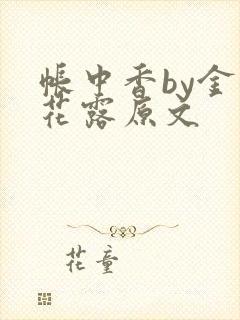 帐中香by金
花露原文
花童